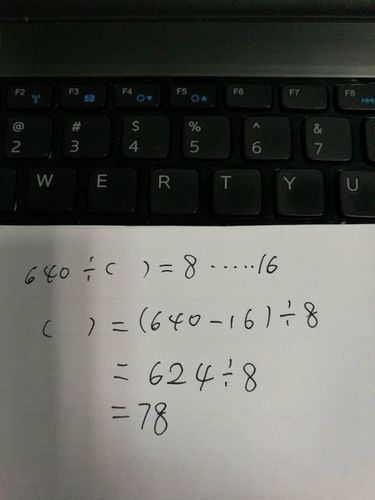 F2 F3 F4 F5 F6 F7 F8
@ # $ % ^ &
2 3 4 5 6 7
W E R T Y U
640÷( )=8……16
( )=(640-16)÷8
=624÷8
=78